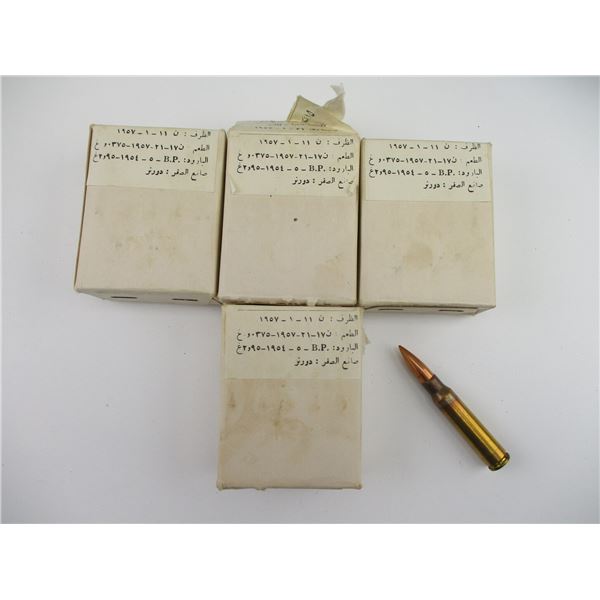 الظرف : ن ١١ – ١ – ١٩٥٧
الطعم : ن١٧–٢١–١٩٥٧–٠٣٧٥و٠ غ
البارود: .B.P – ٥ – ١٩٥٤–٩٥و٢غ
صانع الصفر : دورنو
الظرف : ن ١١ – ١ – ١٩٥٧
الطعم : ن١٧–٢١–١٩٥٧–٠٣٧٥و٠ غ
البارود: .B.P – ٥ – ١٩٥٤–٩٥و٢غ
صانع الصفر : دورنو
الظرف : ن ١١ – ١ – ١٩٥٧
الطعم : ن١٧–٢١–١٩٥٧–٠٣٧٥و٠ غ
البارود: .B.P – ٥ – ١٩٥٤–٩٥و٢غ
صانع الصفر : دورنو
الظرف : ن ١١ – ١ – ١٩٥٧
الطعم : ن١٧–٢١–١٩٥٧–٠٣٧٥و٠ غ
البارود: .B.P – ٥ – ١٩٥٤–٩٥و٢غ
صانع الصفر : دورنو